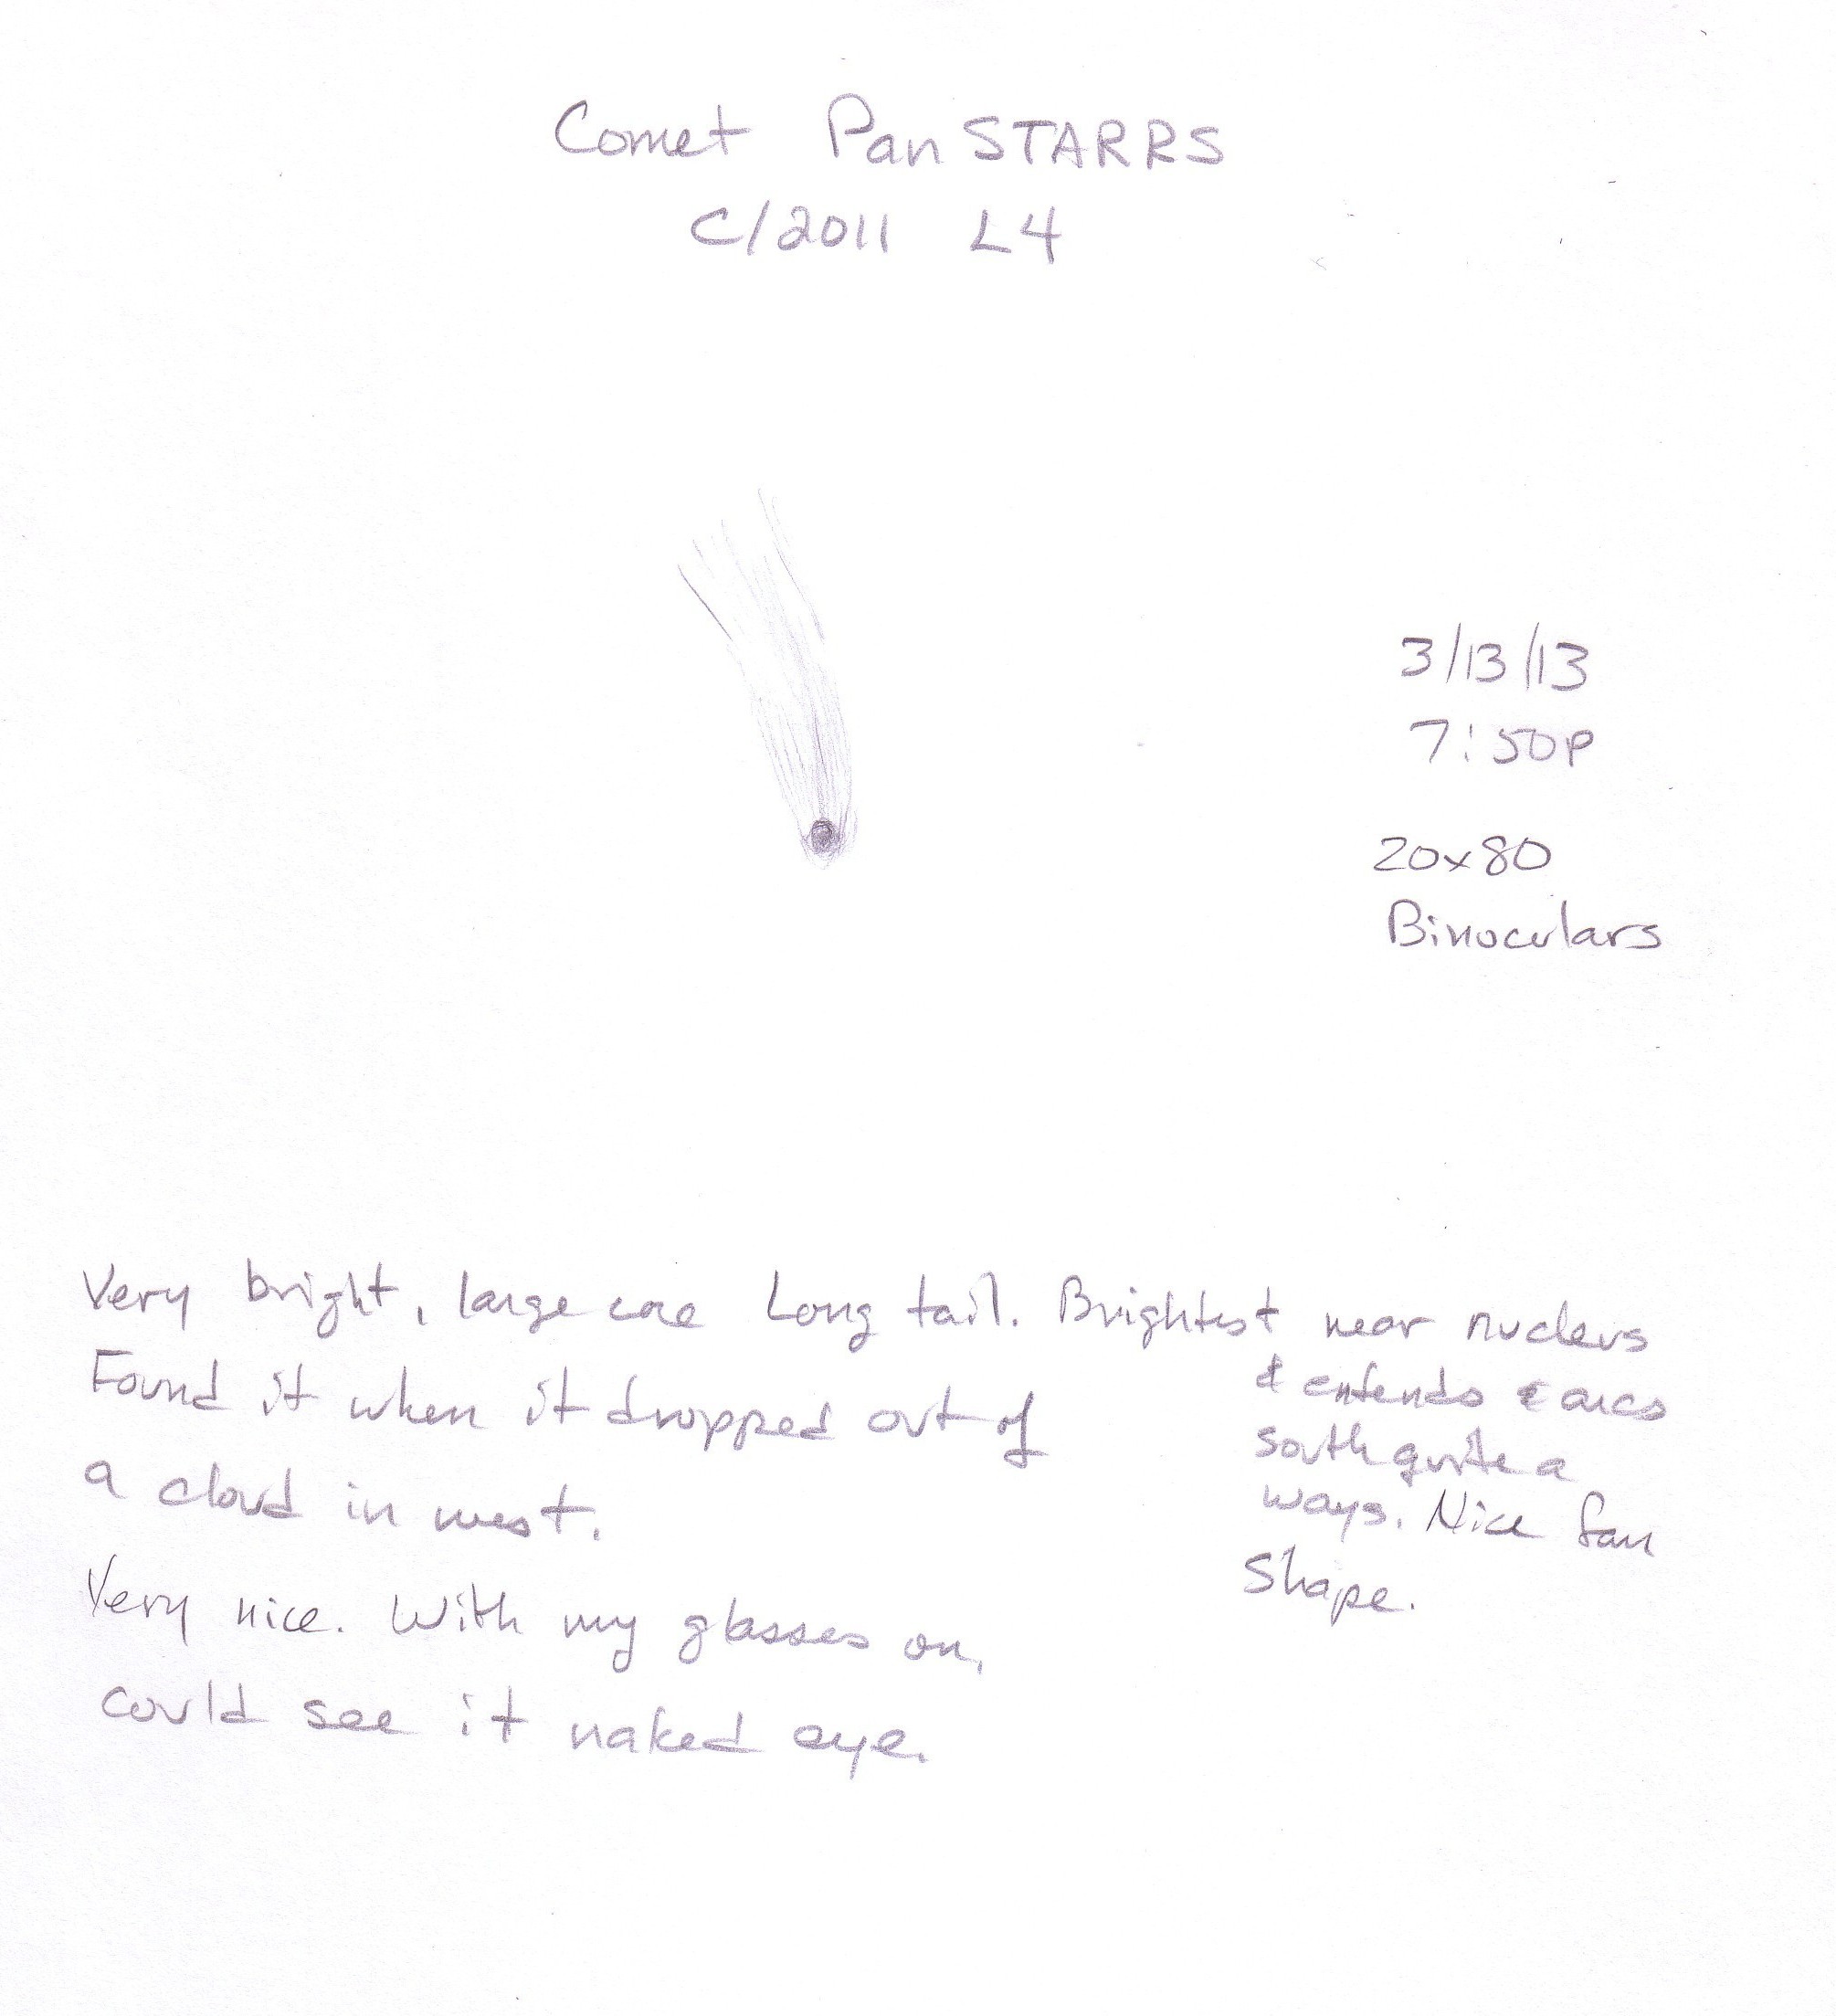 Comet PanSTARRS
C/2011 L4
3/13/13
7:50P
20x80
Binoculars
Very bright, large core Long tail. Brightest near nucleus
& extends & arcs
south quite a
ways. Nice fan
Shape.
Found it when it dropped out of
a cloud in west.
Very nice. With my glasses on,
could see it naked eye.